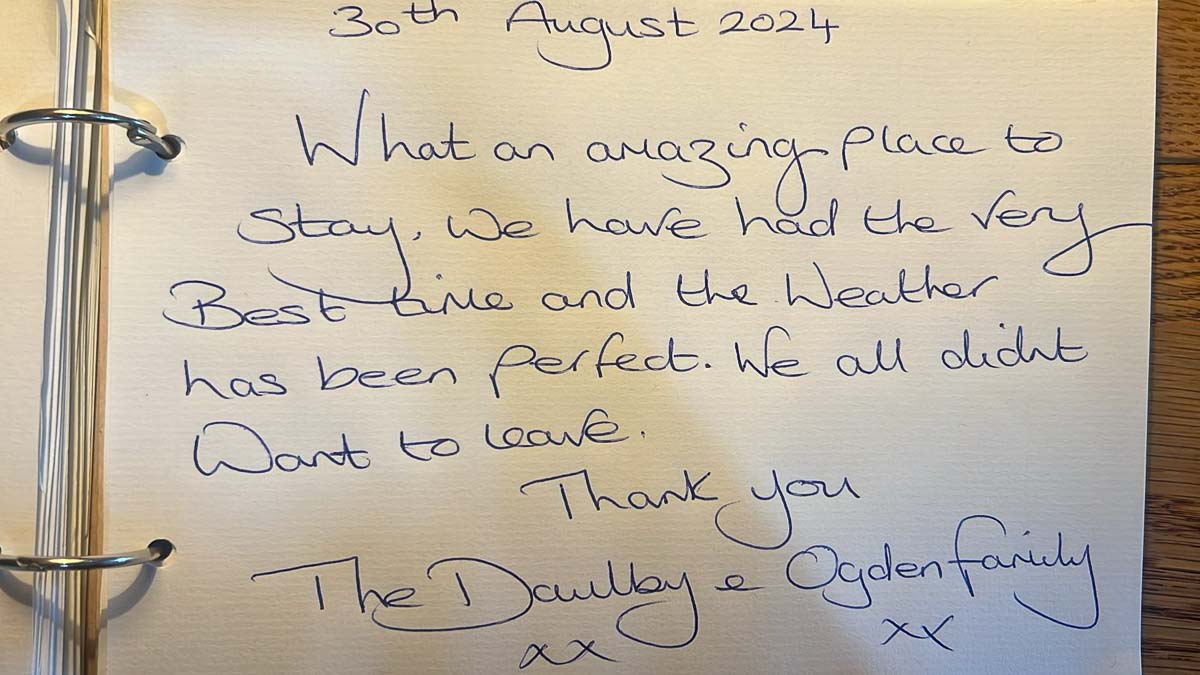 30th August 2024
What an amazing place to
stay. We have had the very
Best time and the Weather
has been perfect. We all didnt
Want to leave.
Thank you
The Daulby e Ogden family
xx xx